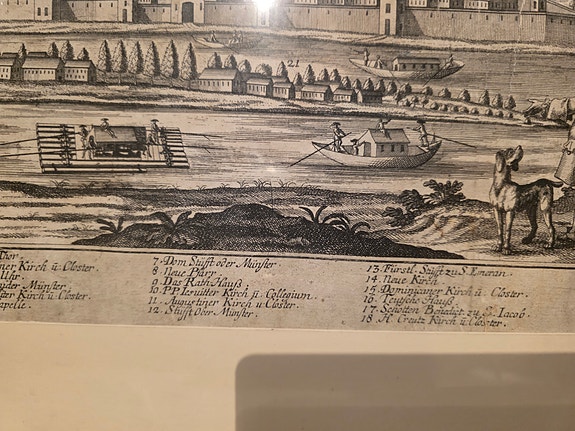 21
Thor
ner Kirch ü Closter.
Uhr.
nder Münster
ster Kirch u Closter.
apelle.
7. Dom Stifft oder Münster
8. Neue Pfarr.
9. Das Rath Hauß.
10. P.P. Iesuitter Kirch ü. Collegium.
11. Augustiner Kirch u Closter.
12. Stifft Ober Münster.
13. Fürstl. Stifft zu S. Emeran.
14. Neue Kirch.
15. Dominicaner Kirch ü. Closter.
16. Teutsche Hauß.
17. Schotten zu S. Iacob.
18. H. Creütz Kirch ü Closter.